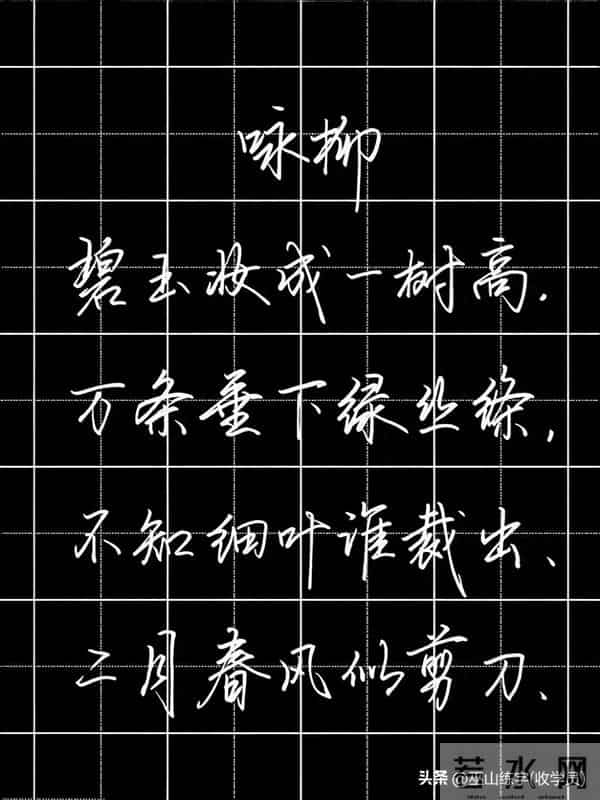 咏柳
碧玉妆成一树高.
万条垂下绿丝绦,
不知细叶谁裁出、
二月春风似剪刀、
若水网
头条@巫山练字(收学员)